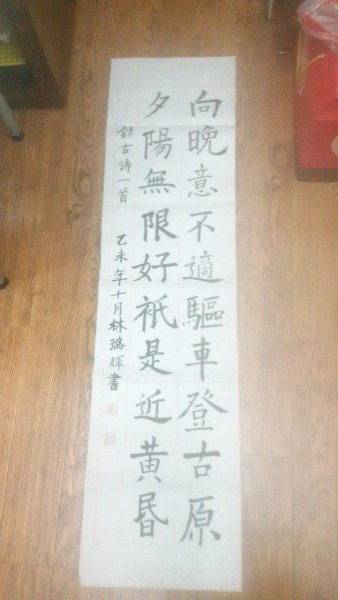 向晚意不適驅車登古原
夕陽無限好祇是近黃昏
錄古詩一首 乙未年十月林璐輝書